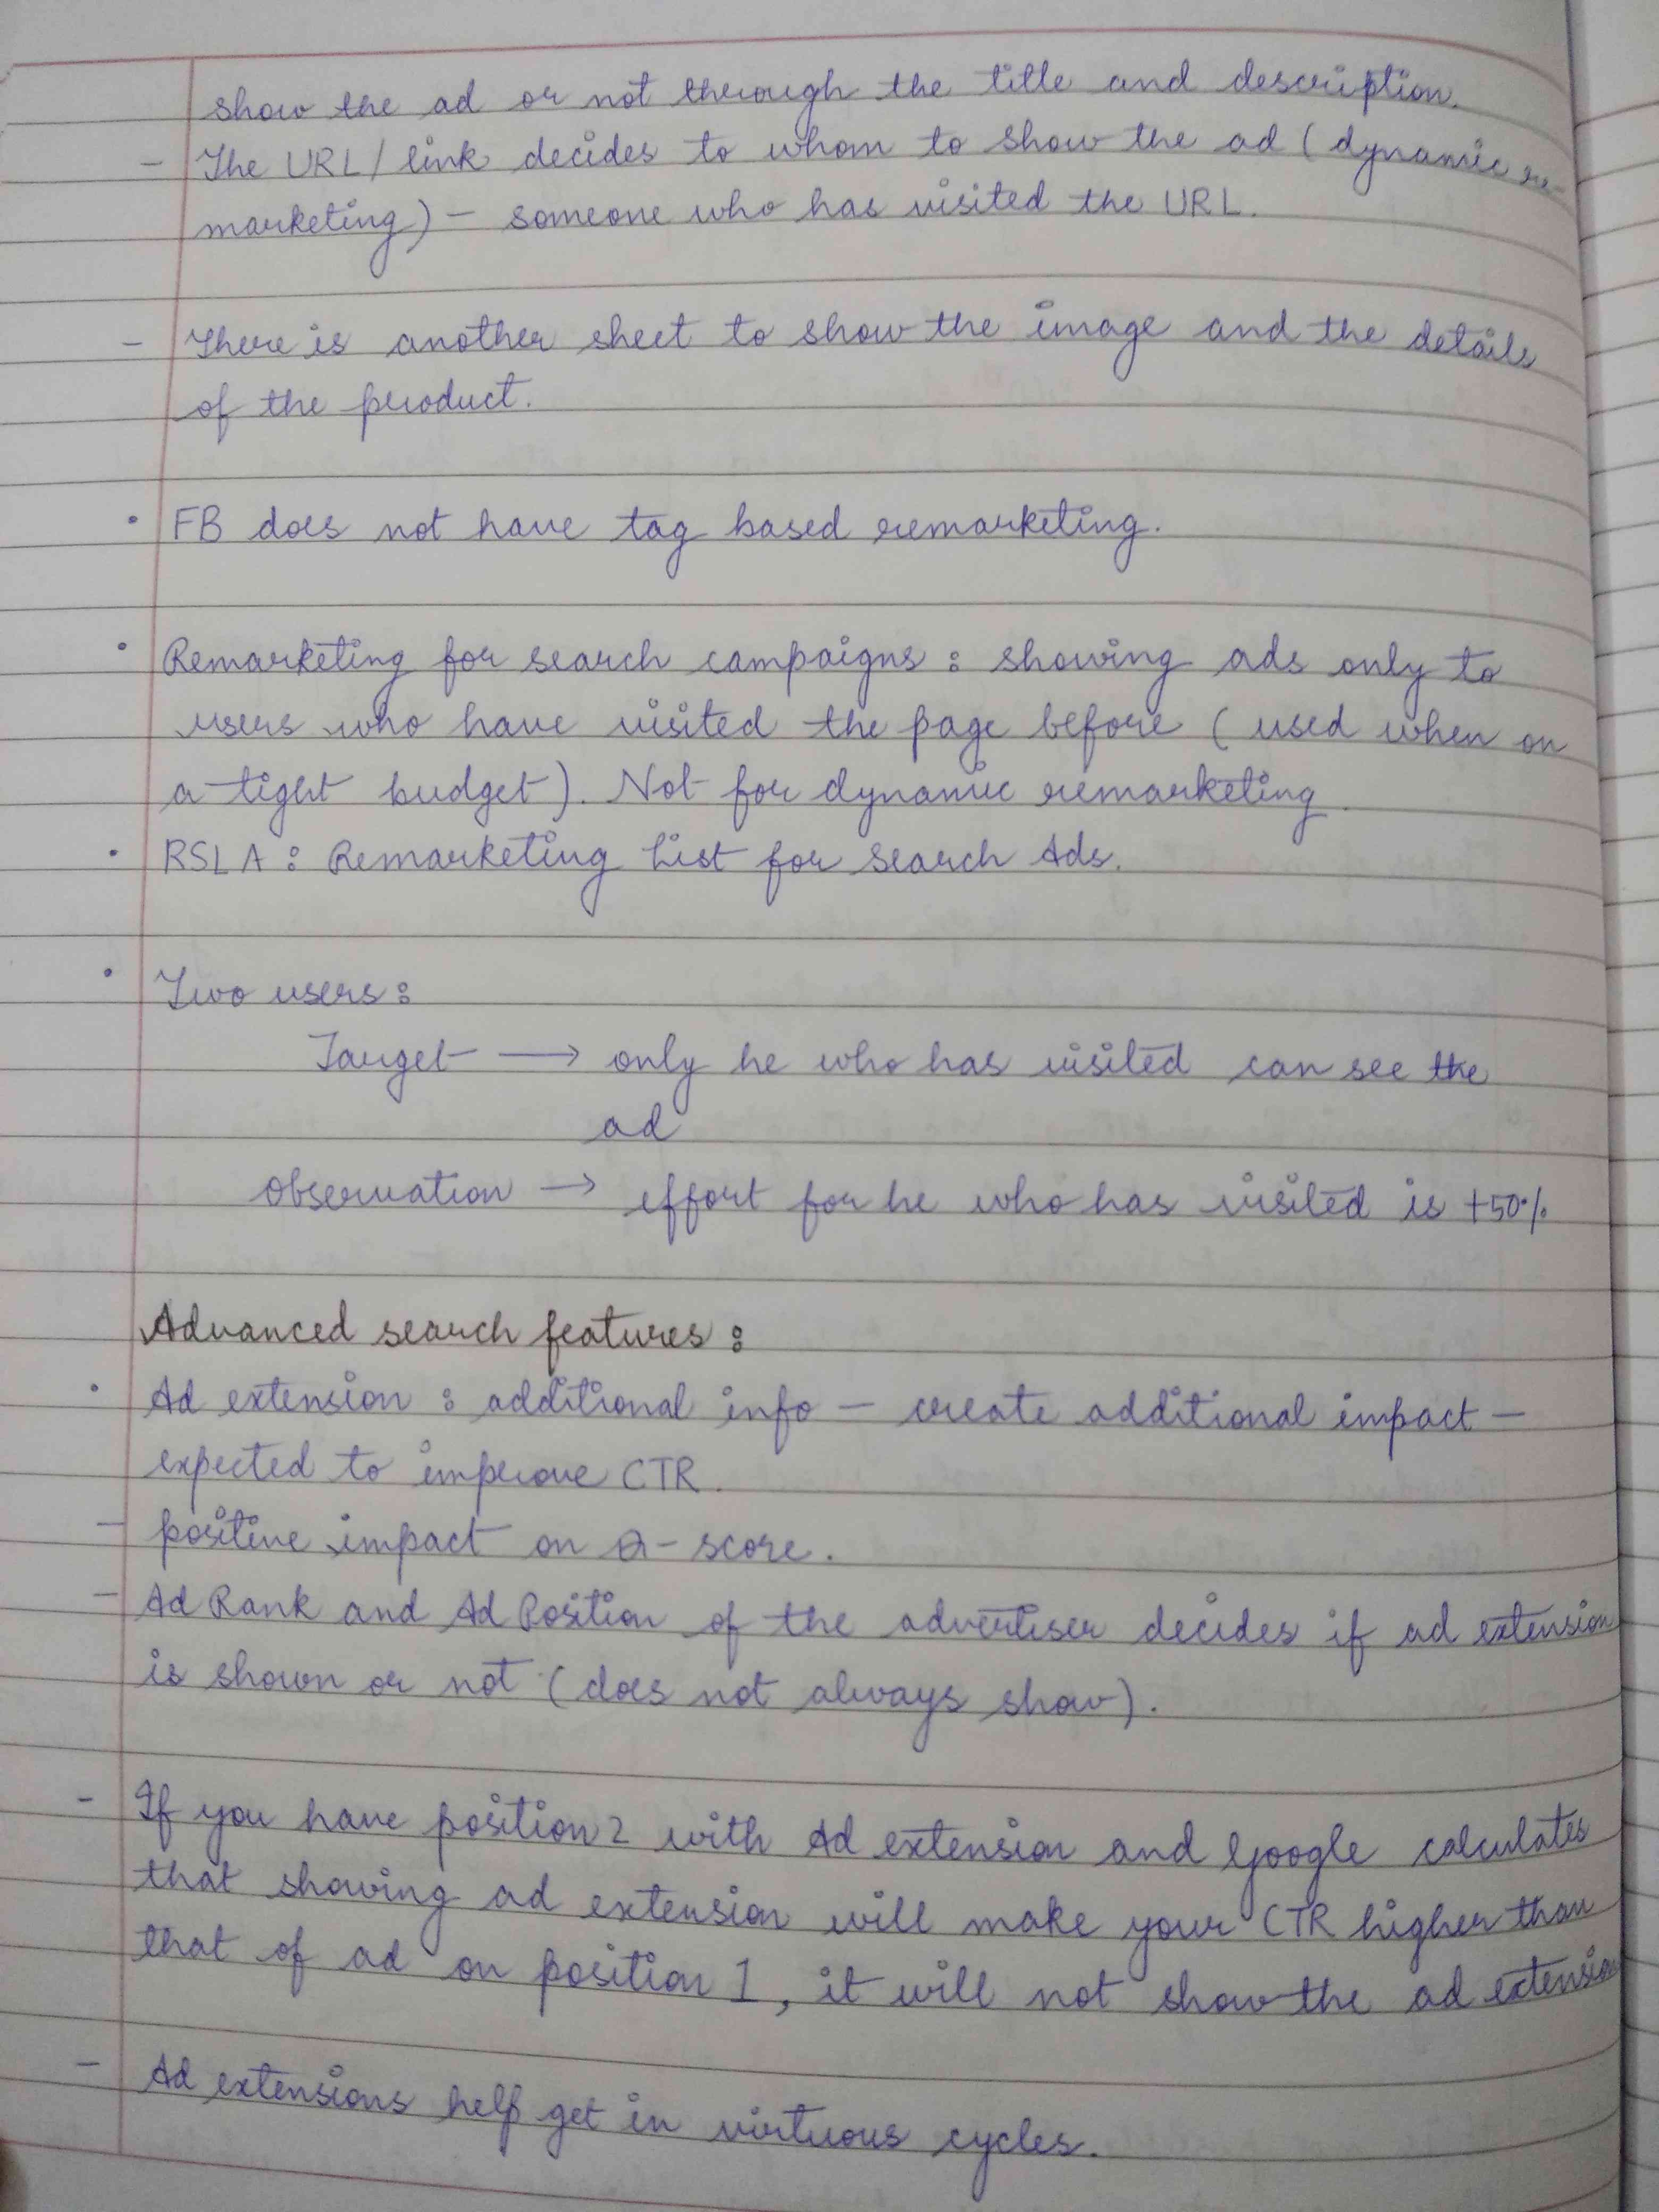 show the ad or not through the title and description.
- The URL/link decides to whom to show the ad (dynamic re-
marketing) - someone who has visited the URL.
- There is another sheet to show the image and the details
of the product.
• FB does not have tag based remarketing.
• Remarketing for search campaigns : showing ads only to
users who have visited the page before (used when on
a tight budget). Not for dynamic remarketing.
• RSLA : Remarketing List for Search Ads.
• Two users :
Target → only he who has visited can see the
ad
Observation → effort for he who has visited is +50%
Advanced search features :
• Ad extension : additional info - create additional impact -
expected to improve CTR.
- positive impact on Q-score.
- Ad Rank and Ad Position of the advertiser decides if ad extension
is shown or not (does not always show).
- If you have position 2 with Ad extension and Google calculates
that showing ad extension will make your CTR higher than
that of ad on position 1, it will not show the ad extension
- Ad extensions help get in virtuous cycles.